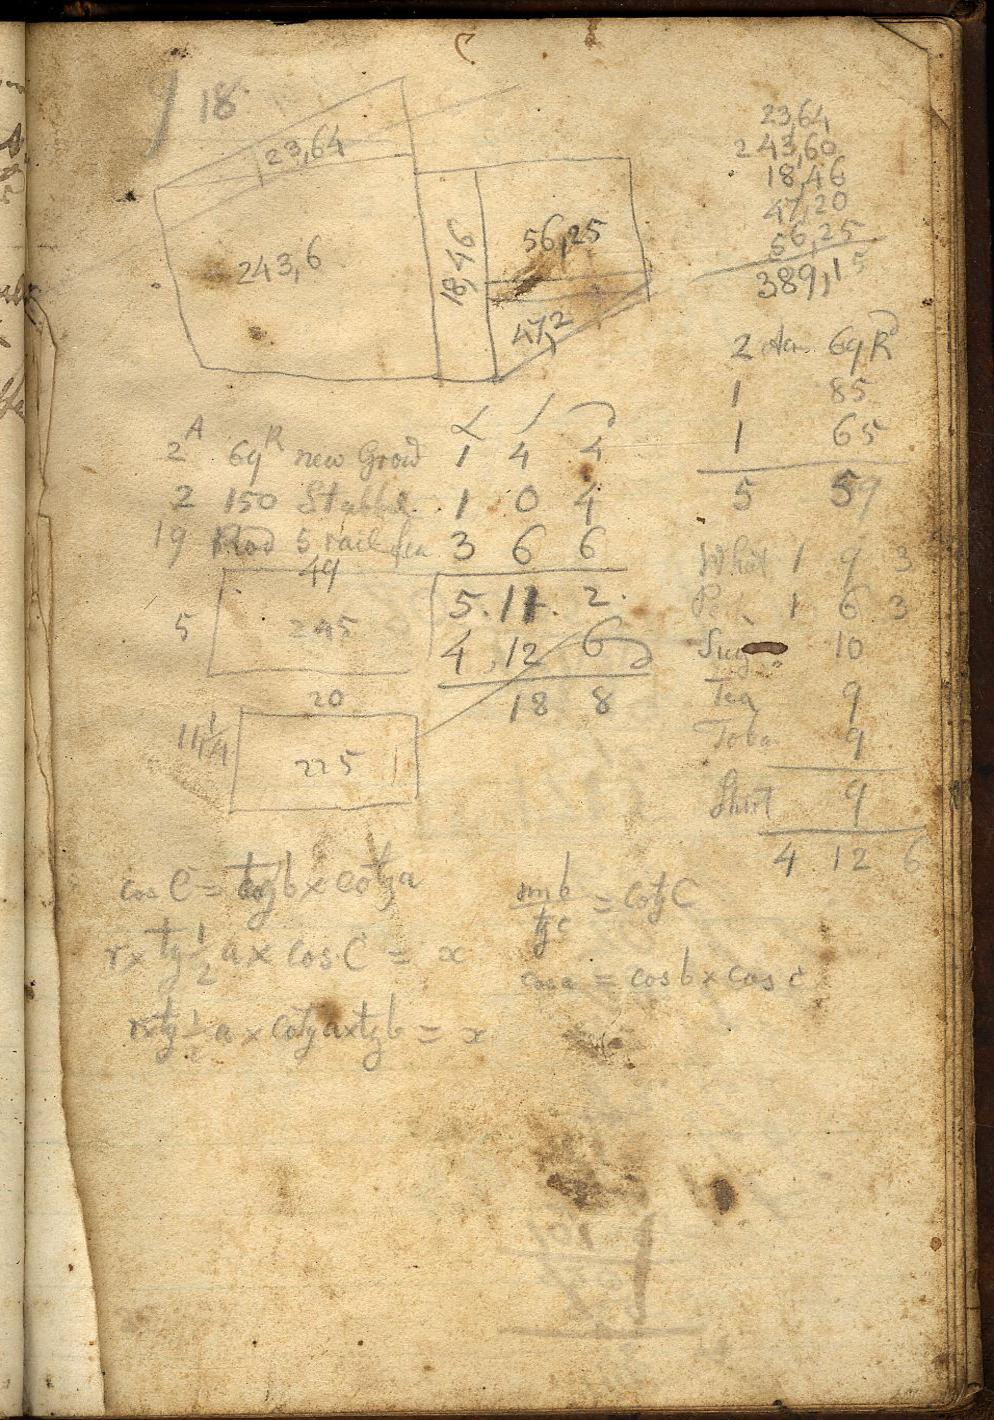 18
23,64
243,6
18,46
56,25
47,2
23,64
243,60
18,46
47,20
56,25
389,15
2 69 R
1 85
1 65
5 59
2 A 69 R new 1 4 4
2 150 1 0 4
19 Rod 5 rail 3 6 6
5. 11. 2.
4, 12 6
18 8
49
5
245
20
11 1/4
225
1 9 3
1 6 3
Sug 10
Tea 9
Toba 9
Shirt 9
4 12 6
cos C = tg b × cotg a
r × tg 1/2 a × cos C = x
r × tg 1/2 a × cotg a × tg b = x
sin b / tg c = cotg C
cos a = cos b × cos c